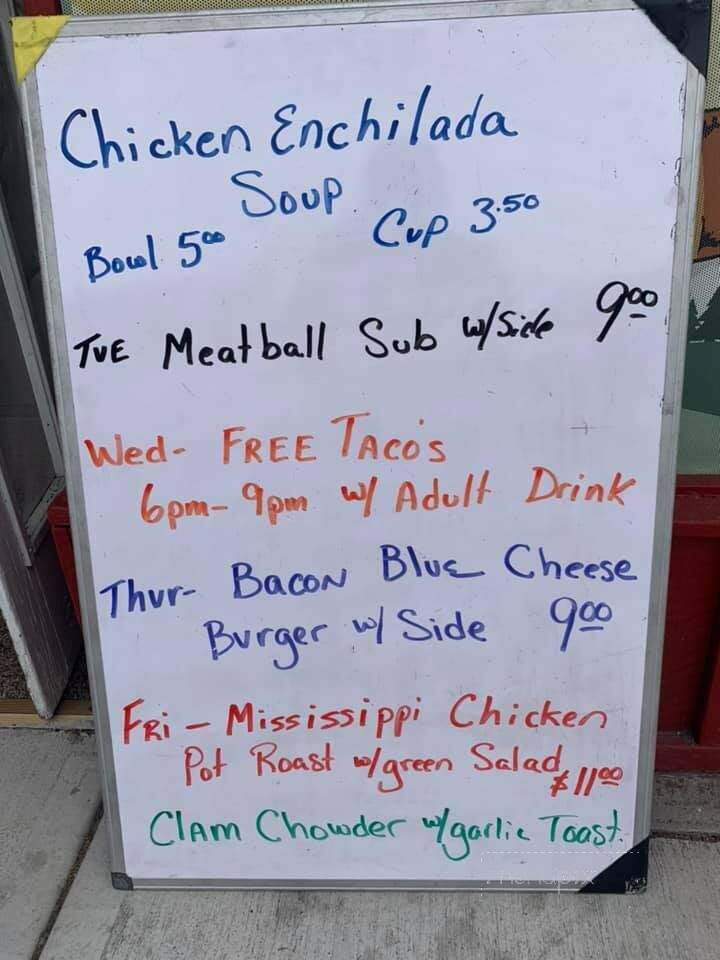 Chicken Enchilada
Soup
Bowl 5.00 Cup 3.50
TUE Meatball Sub w/Side 9.00
Wed- FREE TACO'S
6pm-9pm w/ Adult Drink
Thur- Bacon Blue Cheese
Burger w/ Side 9.00
FRI - Mississippi Chicken
Pot Roast w/green Salad $11.00
Clam Chowder w/garlic Toast.